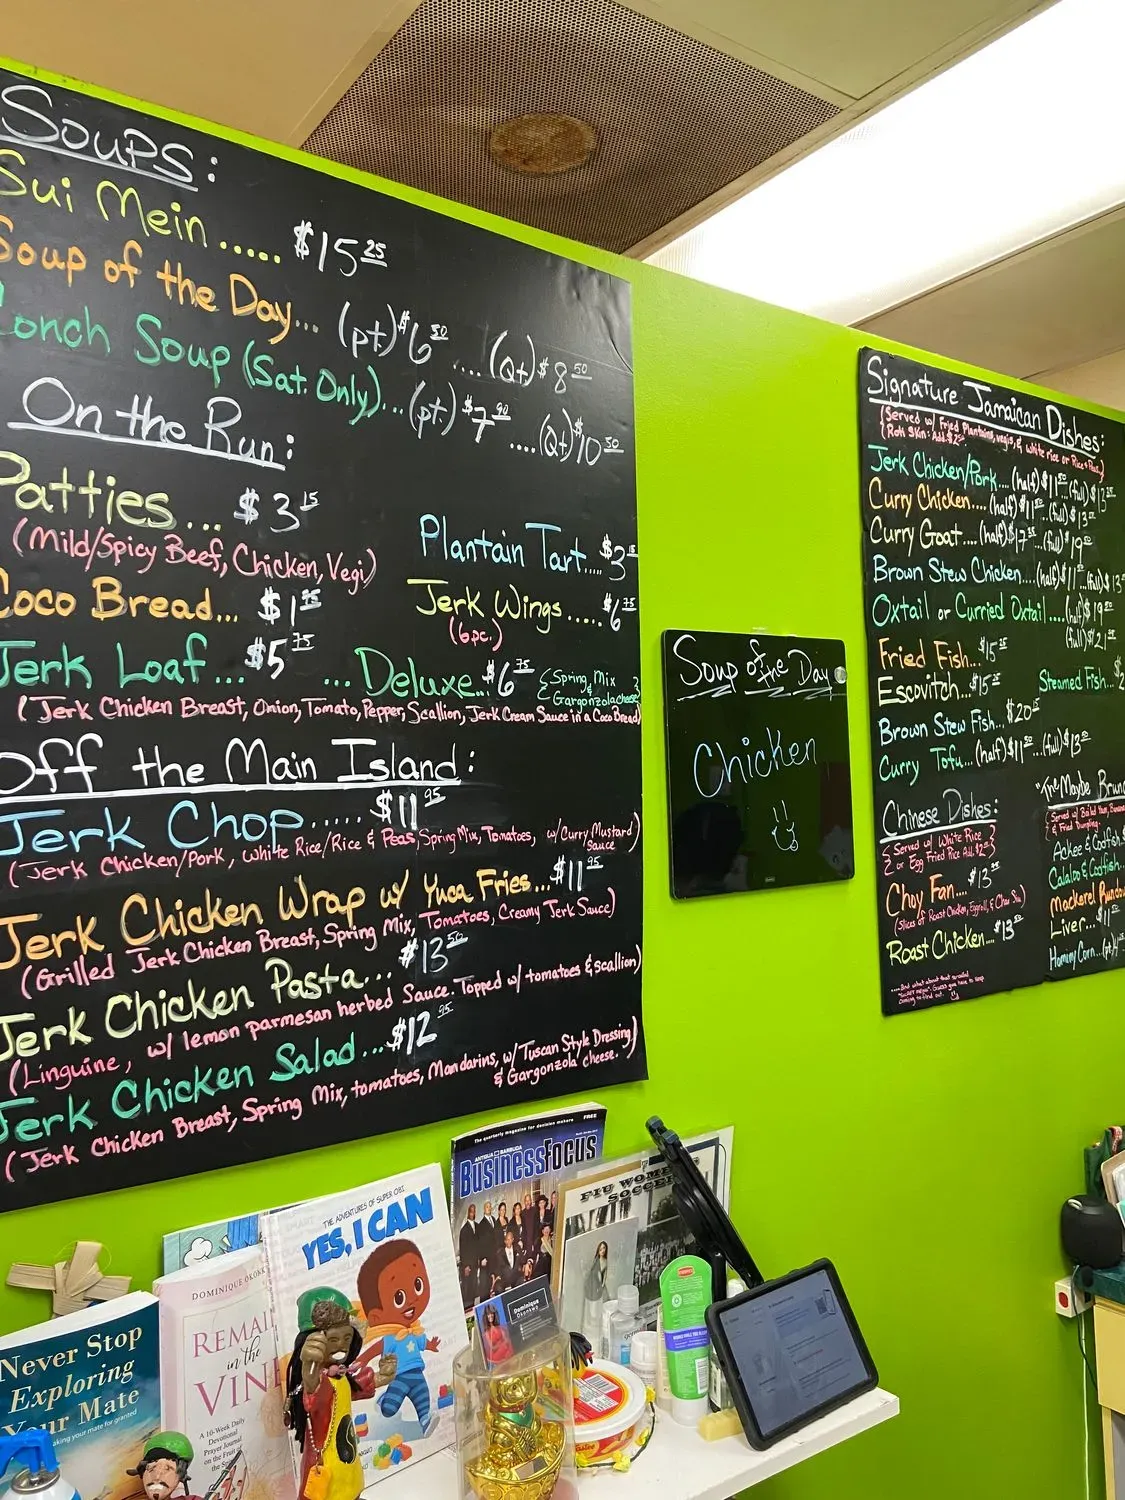 Soups:
Sui Mein..... $15 25
Soup of the Day... (pt.) $6 50 .... (Qt.) $8 50
Conch Soup (Sat. Only)... (pt.) $7 90 .... (Qt) $10 50
On the Run:
Patties... $3 15
(Mild/Spicy Beef, Chicken, Vegi)
Plantain Tart..... $3 15
Coco Bread... $1 75
Jerk Wings ..... $6 75
(6pc.)
Jerk Loaf... $5 75 ... Deluxe... $6 75 {Spring Mix &
Gargonzola cheese}
(Jerk Chicken Breast, Onion, Tomato, Pepper, Scallion, Jerk Cream Sauce in a Coco Bread)
Off the Main Island:
Jerk Chop..... $11 95
(Jerk Chicken/Pork, White Rice/Rice & Peas, Spring Mix, Tomatoes, w/Curry Mustard Sauce)
Jerk Chicken Wrap w/ Yuca Fries... $11 95
(Grilled Jerk Chicken Breast, Spring Mix, Tomatoes, Creamy Jerk Sauce)
Jerk Chicken Pasta... $13 50
(Linguine, w/ lemon parmesan herbed Sauce. Topped w/ tomatoes & scallion)
Jerk Chicken Salad... $12 95
(Jerk Chicken Breast, Spring Mix, tomatoes, Mandarins, w/ Tuscan Style Dressing
& Gargonzola cheese.)
Soup of the Day
Chicken
Signature Jamaican Dishes:
(Served w/ Fried Plantains, vegis, & white rice or Rice & Peas)
Jerk Chicken/Pork.... (half) $11 50 ...(full) $13
Curry Chicken.... (half) $11 ...(full) $13
Curry Goat.... (half) $17 ...(full) $19
Brown Stew Chicken.... (half) $11 ...(full) $13
Oxtail or Curried Oxtail .... (half) $19
(full) $21
Fried Fish... $15 25
Escovitch... $15 25
Steamed Fish...
Brown Stew Fish... $20
Curry Tofu... (half) $11 50 ...(full) $13
Chinese Dishes:
{Served w/ White Rice
or Egg Fried Rice Add. $2}
Choy Fan.... $13
(Slices of Roast Chicken, Eggroll, & Char Siu)
Roast Chicken... $13
"The Maybe Brunc
Served w/ Boiled Yam, Banana
& Fried Dumpling
Ackee & Codfish
Calaloo & Codfish
Mackerel Rundow
Liver... $11
Hominy Corn... (pt.)
....And what about that so-called
coming to find out.
The quarterly magazine for decision makers
FREE
ANTIGUA & BARBUDA
BusinessFocus
FIU WOME
SOCCER
THE ADVENTURES OF SUPER OBI
YES, I CAN
DOMINIQUE OKONK
REMAI
in the
VIN
A 16-Week Daily
Devotional
Prayer Journal
on the Fruit of
Never Stop
Exploring
Your Mate
aking your mate for granted
Dominique